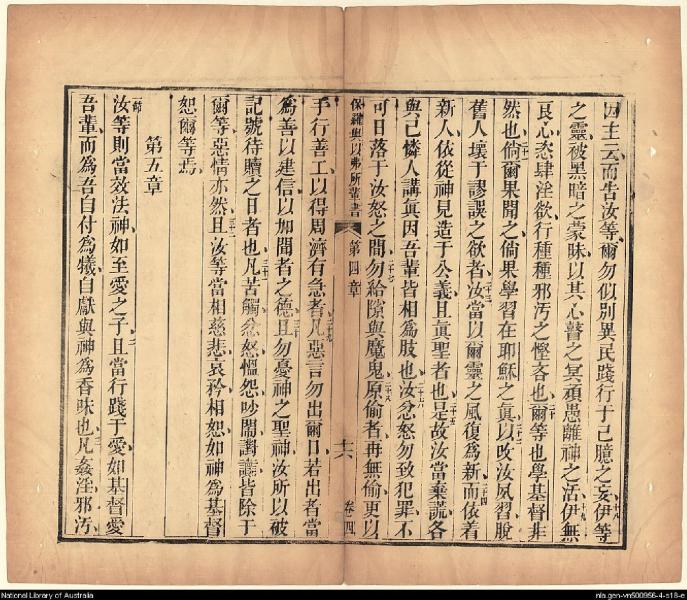 因主云而告汝等爾勿似別異民踐行于己臆之妄伊等
之靈被黑暗之蒙昧以其心瞽之冥頑愚離神之活伊無
良心恣肆淫欲行種種邪污之慳吝也爾等也學基督非
然也倘爾果聞之倘果學習在耶穌之真以改汝夙習脫
舊人壞于謬誤之欲者汝當以爾靈之風復為新而依着
新人依從神見造于公義且真聖者也是故汝當棄謊各
與己憐人講真因吾輩皆相為肢也汝忿怒勿致犯罪不
可日落于汝怒之間勿給隙與魔鬼原偷者再無偷更以
保羅與以弗所輩書 第四章 十六 卷四
手行善工以得周濟有急者凡惡言勿出爾口若出者當
為善以建信以加聞者之德且勿憂神之聖神汝所以被
記號待贖之日者也凡苦觸忿怒慍怨吵鬧讟讒皆除于
爾等惡情亦然且汝等當相慈悲哀矜相恕如神為基督
恕爾等焉
第五章
汝等則當效法神如至愛之子且當行踐于愛如基督愛
吾輩而為吾自付為犧自獻與神為香味也凡姦淫邪污
National Library of Australia
nla.gen-vn500956-4-s18-e